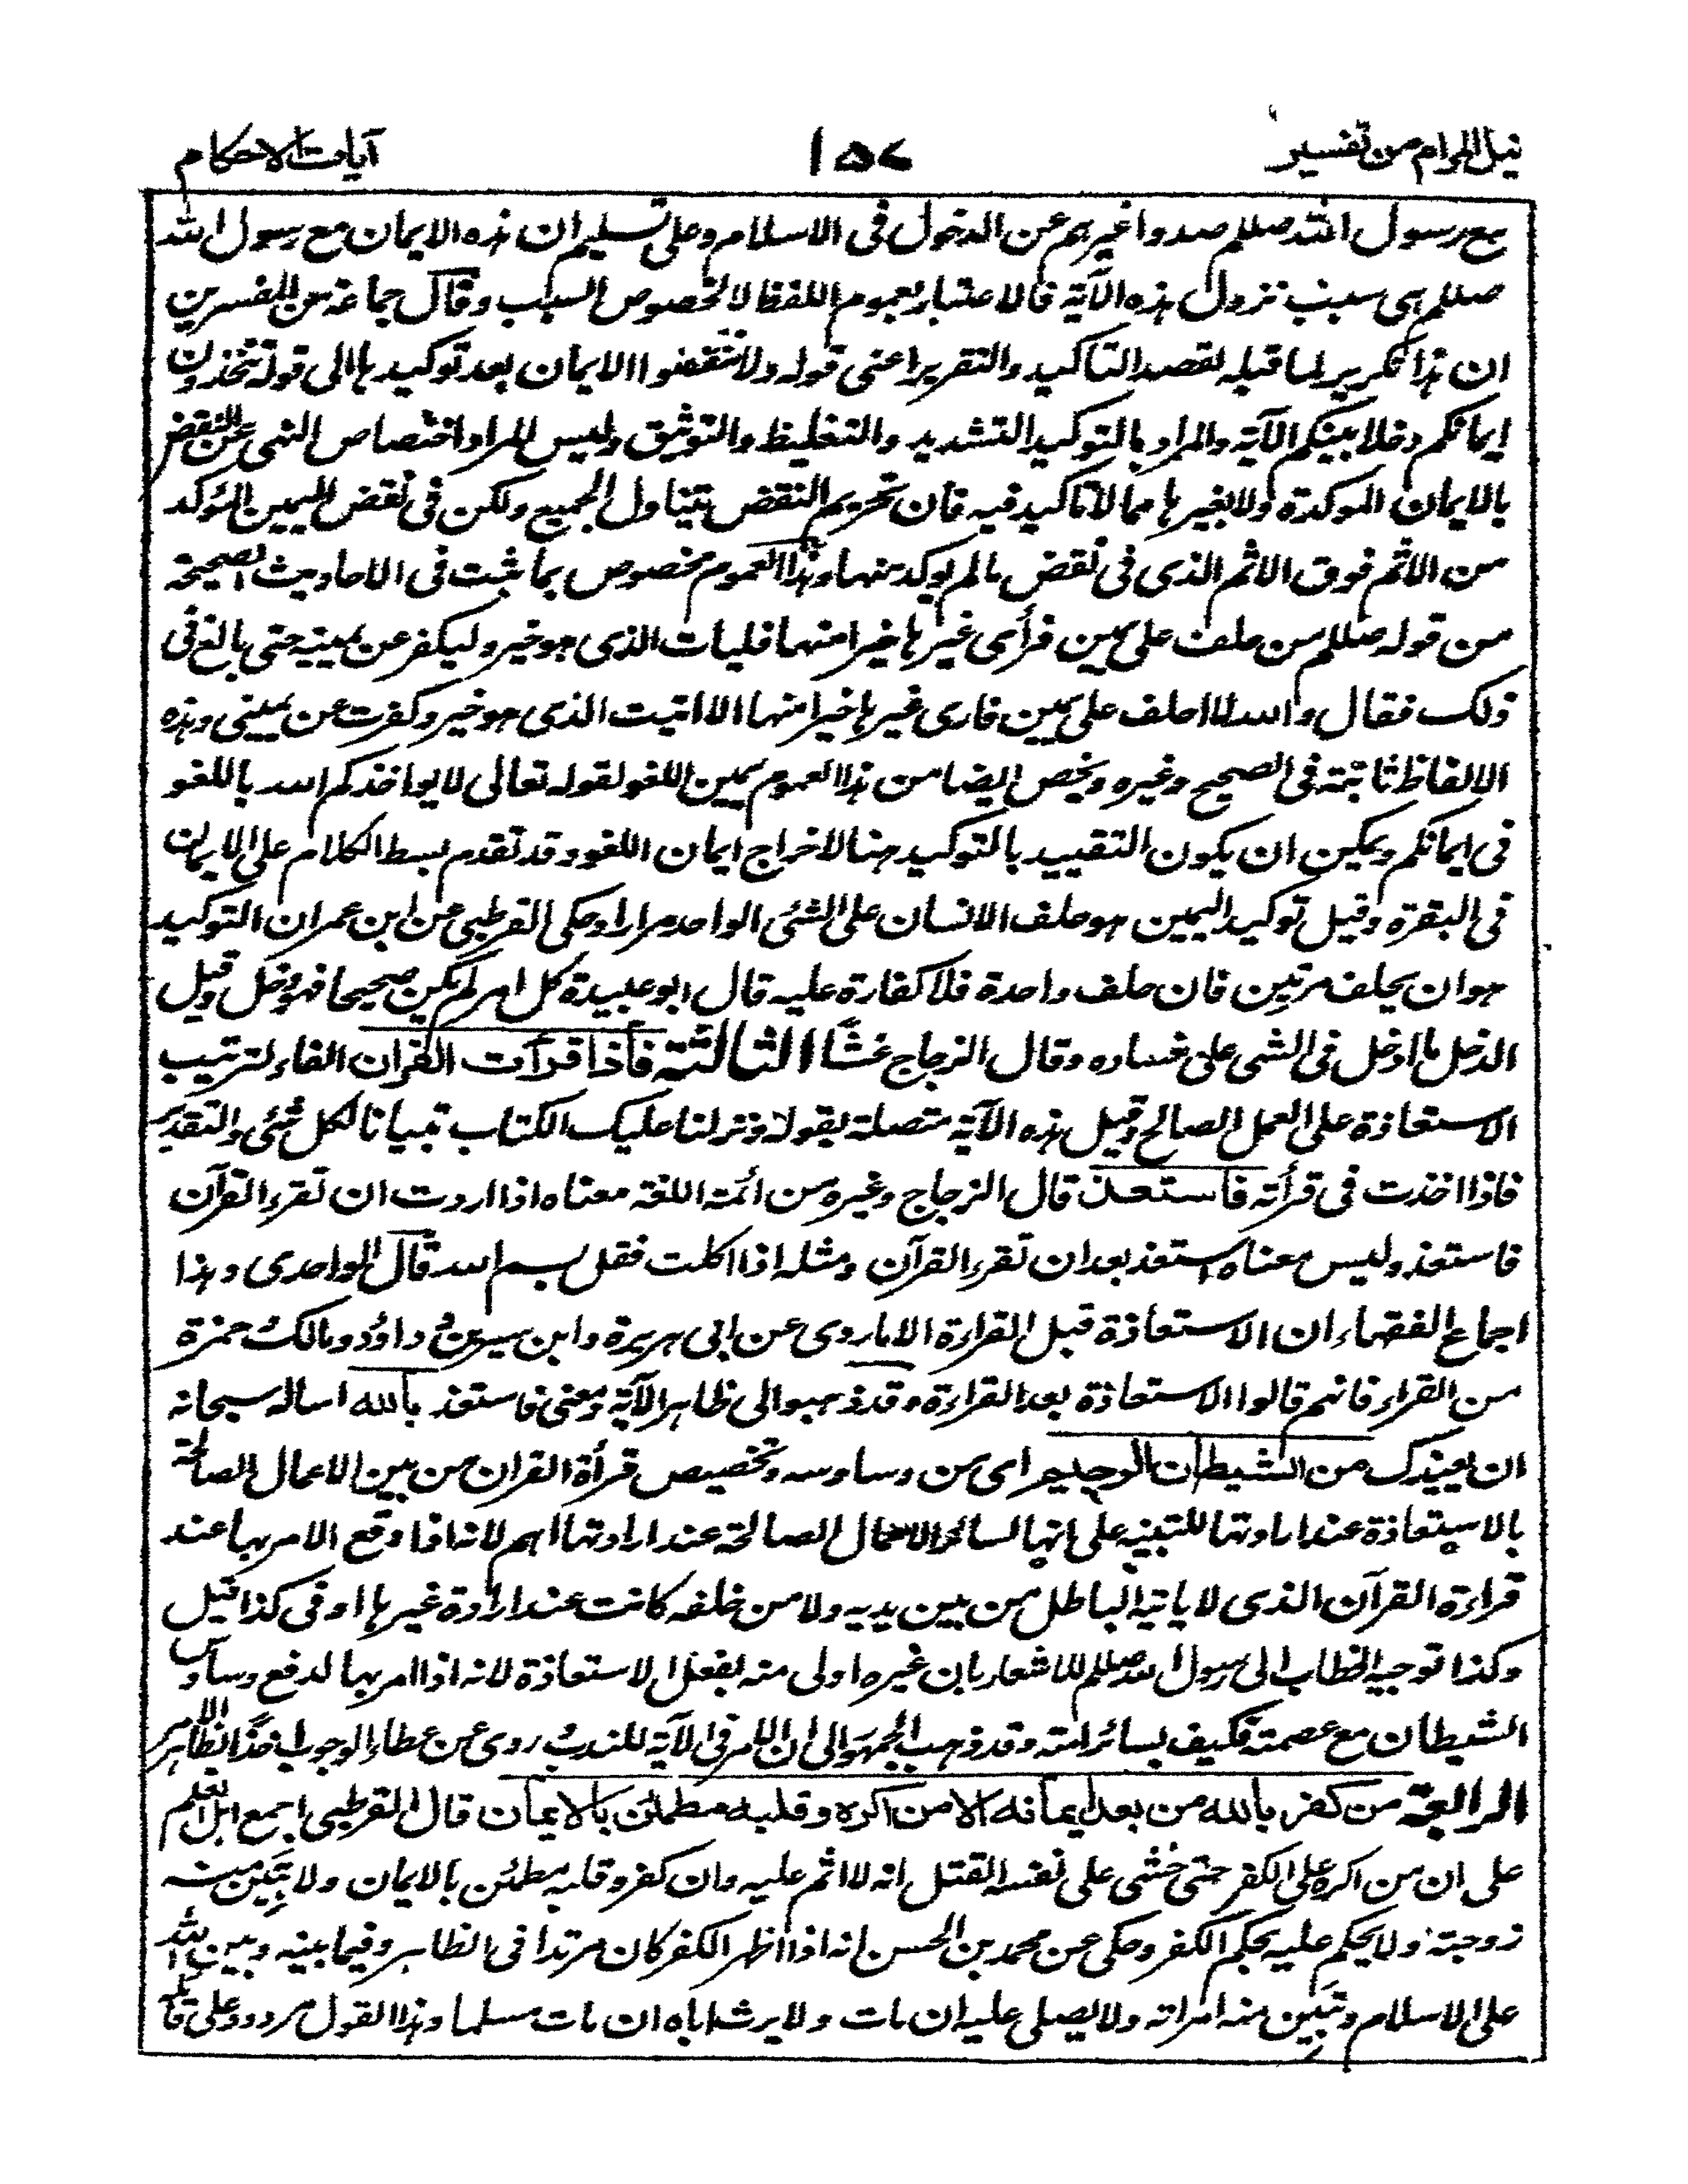 نيل المرام من تفسير
١٥٧
آيات الاحكام
مع رسول الله صللم صدوا غيرهم عن الدخول فى الاسلام وعلى تسليم ان هذه الايمان مع رسول الله
صللم هى سبب نزول هذه الآية فالاعتبار بعموم اللفظ لا لخصوص السبب وقال جماعة من المفسرين
ان هذا تكرير لما قبله لقصد التاكيد والتقرير اعنى قوله ولا تنقضوا الايمان بعد توكيدها الى قوله تتخذون
ايمانكم دخلا بينكم الآية والمراد بالتوكيد التشديد والتغليظ والتوثيق وليس المراد اختصاص النهى عن النقض
بالايمان الموكدة ولا بغيرها مما لا تاكيد فيه فان تحريم النقض يتناول الجميع ولكن فى نقض اليمين المؤكد
من الاثم فوق الاثم الذى فى نقض مالم يوكد منها وهذا العموم مخصوص بما ثبت فى الاحاديث الصحيحة
من قوله صللم من حلف على يمين فرأى غيرها خيرا منها فليات الذى هو خير وليكفر عن يمينه حتى بالغ فى
ذلك فقال والله لا احلف على يمين فارى غيرها خيرا منها الا اتيت الذى هو خير وكفرت عن يمينى وهذه
الالفاظ ثابتة فى الصحيح وغيره ويخص ايضا من هذا العموم يمين اللغو لقوله تعالى لا يواخذكم الله باللغو
فى ايمانكم ويمكن ان يكون التقييد بالتوكيد هنا لاخراج ايمان اللغو وقد تقدم بسط الكلام على الايمان
فى البقرة وقيل توكيد اليمين هو حلف الانسان على الشئ الواحد مرارا وحكى القرطبى عن ابن عمران التوكيد
هو ان يحلف مرتين فان حلف واحدة فلا كفارة عليه قال ابو عبيدة كل امر لم يكن صحيحا فهو دخل وقيل
الدخل ما ادخل فى الشى على فساده وقال الزجاج غشًّا الثالثة فاذا قرأت القران الفاء لترتيب
الاستعاذة على العمل الصالح وقيل هذه الآية متصلة بقوله ونزلنا عليك الكتاب تبيانا لكل شئى والتقدير
فاذا اخذت فى قرأته فاستعذ قال الزجاج وغيره من ائمة اللغة معناه اذا اردت ان تقرء القرآن
فاستعذ وليس معناه استعذ بعد ان تقرء القرآن ومثله اذا اكلت فقل بسم الله قال الواحدى وهذا
اجماع الفقهاء ان الاستعاذة قبل القراءة الا ما روى عن ابى هريرة وابن سيرين وداؤد ومالك وحمزة
من القراء فانهم قالوا الاستعاذة بعد القراءة وقد ذهبوا الى ظاهر الآية ومعنى فاستعذ بالله اساله سبحانه
ان يعيذك من الشيطان الرجيم اى من وساوسه وتخصيص قرأة القران من بين الاعمال الصالحة
بالاستعاذة عند ارادتها للتبنيه على انها لسائر الاعمال الصالحة عند ارادتها اهم لانه اذا وقع الامر بها عند
قراءة القرآن الذى لا ياتيه الباطل من بين يديه ولا من خلفه كانت عند ارادة غيرها اوفى كذا قيل
وكذا توجيه الخطاب الى رسول الله صللم للاشعار بان غيره اولى منه بفعل الاستعاذة لانه اذا امر بها لدفع وساوس
الشيطان مع عصمته فكيف بسائر امته وقد ذهب الجمهور الى ان الامر فى الآية للندب روى عن عطاء الوجوب اخذًا بظاهر الامر
الرابعة من كفر بالله من بعد ايمانه الا من اكره وقلبه مطمئن بالايمان قال القرطبى اجمع اهل العلم
على ان من اكره على الكفر حتى خشى على نفسه القتل انه لا اثم عليه وان كفر وقلبه مطمئن بالايمان ولا تبين منه
زوجته ولا يحكم عليه بحكم الكفر وحكى عن محمد بن الحسن انه اذا اظهر الكفر كان مرتدا فى الظاهر وفيما بينه وبين الله
على الاسلام وتبين منه امراته ولا يصلى عليه ان مات ولا يرث اباه ان مات مسلما وهذا القول مردود على قائله